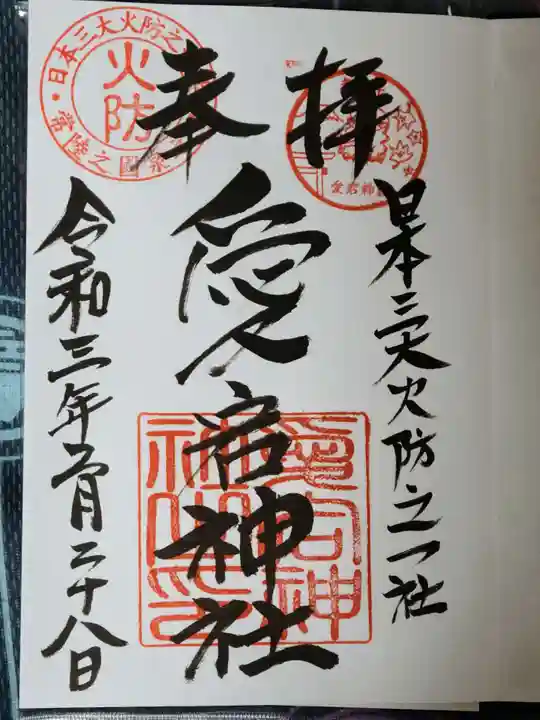 奉拝
日本三大火防之一社
愛宕神社
令和三年二月二十八日
日本三大火防之
火防
常陸之國
愛宕神
愛宕神